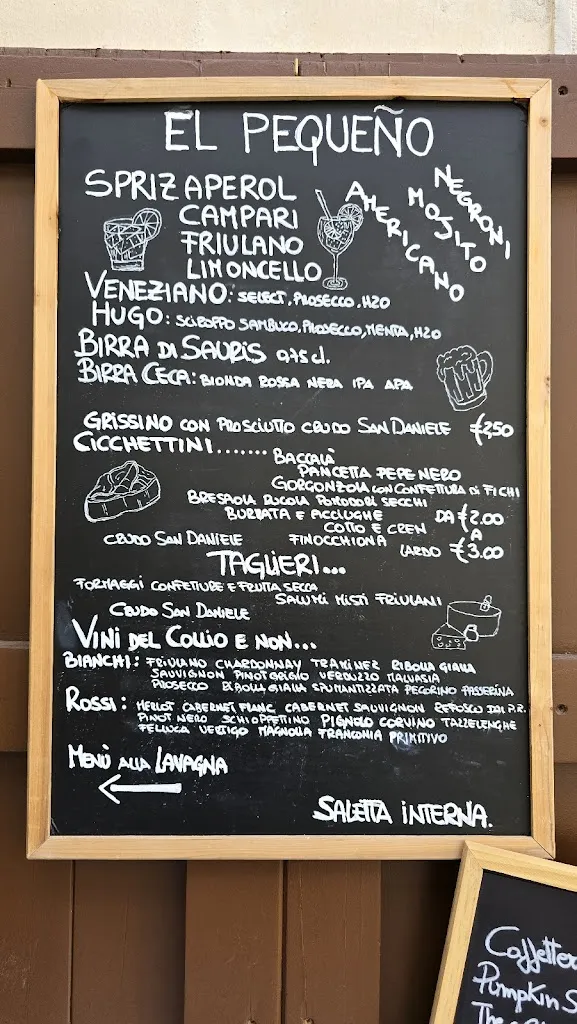 EL PEQUEÑO
SPRIZ APEROL
CAMPARI
FRIULANO
LIMONCELLO
AMERICANO
MOJITO
NEGRONI
VENEZIANO: SELECT, PROSECCO, H2O
HUGO: SCIROPPO SAMBUCO, PROSECCO, MENTA, H2O
BIRRA DI SAURIS 0,75 cl.
BIRRA CECA: BIONDA ROSSA NERA IPA APA
GRISSINO CON PROSCIUTTO CRUDO SAN DANIELE €2,50
CICCHETTINI.......
BACCALÀ
PANCETTA PEPE NERO
GORGONZOLA CON CONFETTURA DI FICHI
BRESAOLA RUCOLA POMODORI SECCHI
BURRATA E ACCIUGHE DA €2.00
COTTO E CREN A
CRUDO SAN DANIELE FINOCCHIONA LARDO €3.00
TAGLIERI...
FORMAGGI CONFETTURE E FRUTTA SECCA
SALUMI MISTI FRIULANI
CRUDO SAN DANIELE
VINI DEL COLLIO E NON...
BIANCHI: FRIULANO CHARDONNAY TRAMINER RIBOLLA GIALLA
SAUVIGNON PINOT GRIGIO VERDUZZO MALVASIA
PROSECCO RIBOLLA GIALLA SPUMANTIZZATA PECORINO PASSERINA
ROSSI: MERLOT CABERNET FRANC CABERNET SAUVIGNON REFOSCO DAL P.R.
PINOT NERO SCHIOPPETTINO PIGNOLO CORVINO TAZZELENGHE
FELLUGA VERTIGO MAGNOLIA FRANCONIA PRIMITIVO
MENÙ ALLA LAVAGNA
SALETTA INTERNA.
Pumpkin S